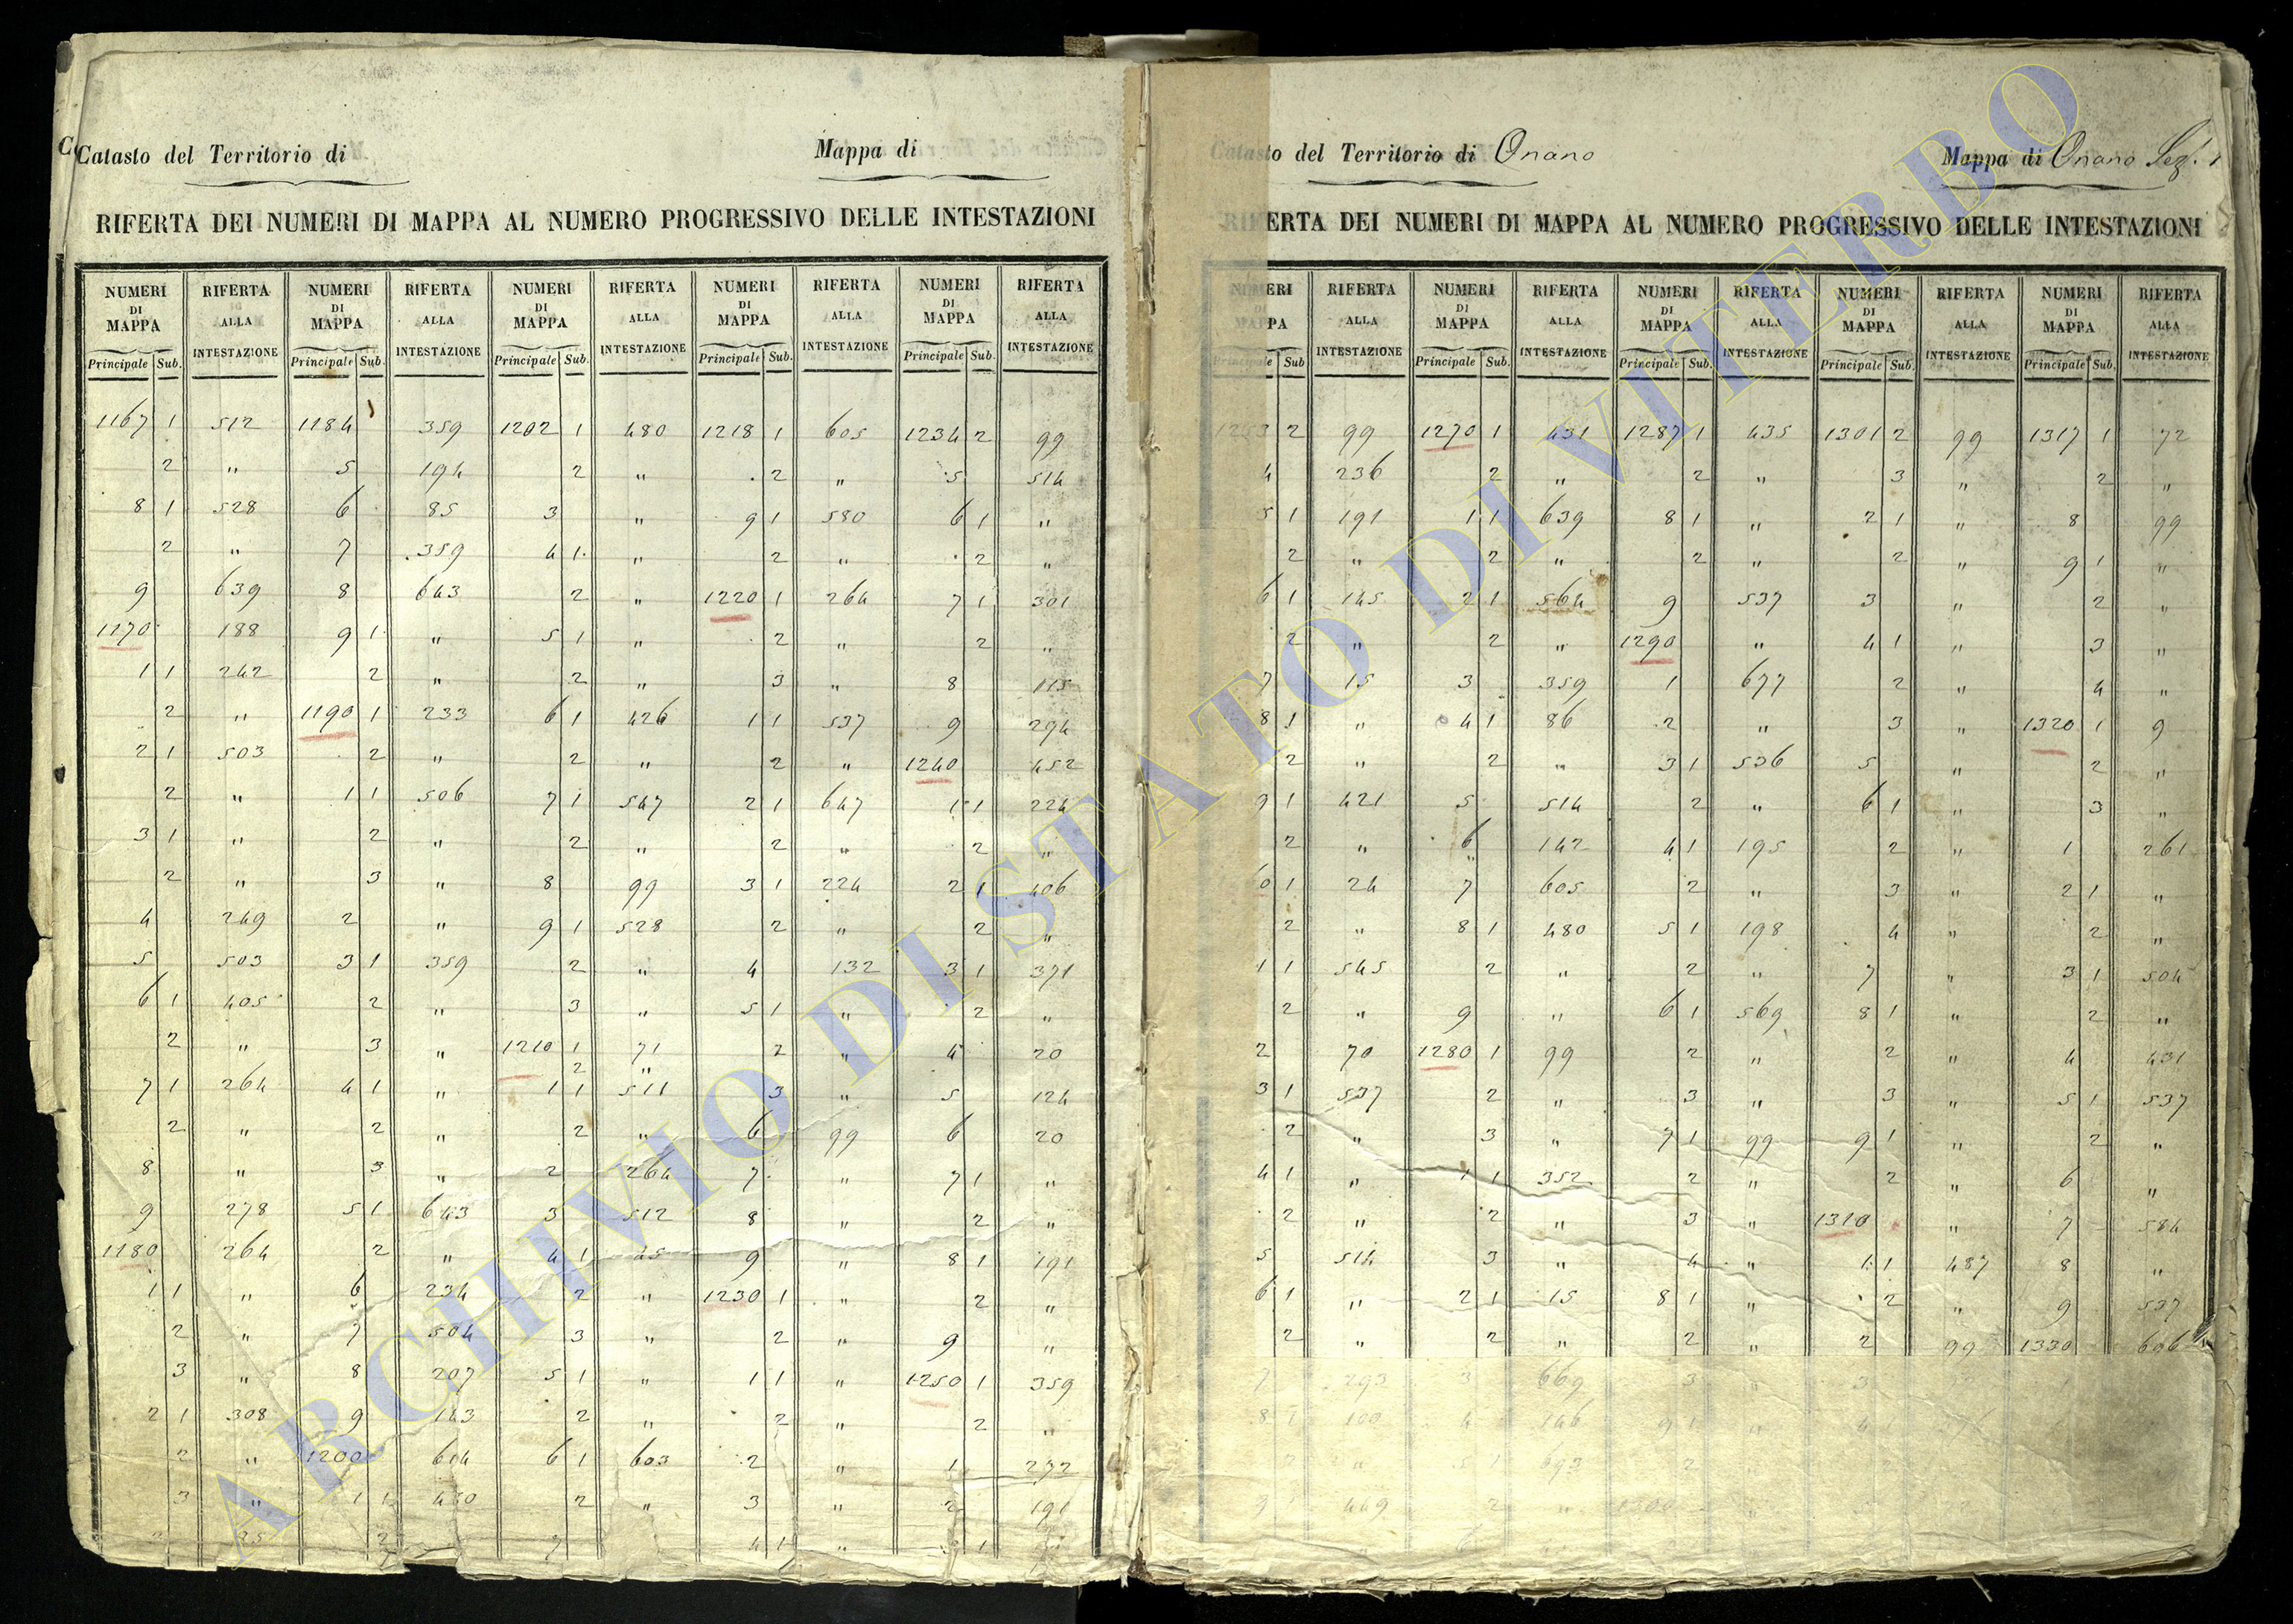 Catasto del Territorio di Mappa di
RIFERTA DEI NUMERI DI MAPPA AL NUMERO PROGRESSIVO DELLE INTESTAZIONI
NUMERI DI MAPPA RIFERTA ALLA INTESTAZIONE NUMERI DI MAPPA RIFERTA ALLA INTESTAZIONE NUMERI DI MAPPA RIFERTA ALLA INTESTAZIONE NUMERI DI MAPPA RIFERTA ALLA INTESTAZIONE NUMERI DI MAPPA RIFERTA ALLA INTESTAZIONE
Principale Sub. Principale Sub. Principale Sub. Principale Sub. Principale Sub.
1167 1 512 1184 359 1202 1 480 1218 1 605 1234 2 99
2 " 5 194 2 " 2 " 5 514
8 1 528 6 85 3 " 9 1 580 6 1 "
2 " 7 359 4 1 " 2 " 2 "
9 639 8 643 2 " 1220 1 264 7 1 301
1170 188 9 1 " 5 1 " 2 " 2 "
1 1 242 2 " 2 " 3 " 8 115
2 " 1190 1 233 6 1 426 1 1 537 9 294
2 1 503 2 " 2 " 2 " 1240 452
2 " 1 1 506 7 1 547 2 1 647 1 1 224
3 1 " 2 " 2 " 2 " 2 "
2 " 3 " 8 99 3 1 224 2 1 406
4 249 2 " 9 1 528 2 " 2 "
5 503 3 1 359 2 " 4 132 3 1 371
6 1 405 2 " 3 " 5 1 " 2 "
2 " 3 " 1210 1 71 2 " 4 20
2 "
7 1 264 4 1 " 1 1 511 3 " 5 124
2 " 2 " 2 " 6 99 6 20
8 " 3 " 2 264 7 " 7 1 "
9 278 5 1 643 3 512 8 " 2 "
1180 264 2 " 4 1 9 " 8 1 191
1 1 " 6 234 2 " 1230 1 " 2 "
2 " 7 504 3 " 2 " 9 "
3 " 8 207 5 1 " 1 1 " 1250 1 359
2 1 308 9 143 2 " 2 " 2 "
2 " 1200 604 6 1 603 2 " 1 272
3 " 1 1 480 2 " 3 " 2 191
2 7 4 1 " 1
Catasto del Territorio di Onano Mappa di Onano Sez. 1
RIFERTA DEI NUMERI DI MAPPA AL NUMERO PROGRESSIVO DELLE INTESTAZIONI
NUMERI DI MAPPA RIFERTA ALLA INTESTAZIONE NUMERI DI MAPPA RIFERTA ALLA INTESTAZIONE NUMERI DI MAPPA RIFERTA ALLA INTESTAZIONE NUMERI DI MAPPA RIFERTA ALLA INTESTAZIONE NUMERI DI MAPPA RIFERTA ALLA INTESTAZIONE
Principale Sub Principale Sub. Principale Sub. Principale Sub. Principale Sub.
1253 2 99 1270 1 431 1287 1 435 1301 2 99 1317 1 72
4 236 2 " 2 " 3 " 2 "
5 1 191 1 1 639 8 1 " 2 1 " 8 99
2 " 2 " 2 " 2 " 9 1 "
6 1 145 2 1 564 9 537 3 " 2 "
2 " 2 " 1290 " 4 1 " 3 "
7 15 3 359 1 677 2 " 4 "
8 1 " 4 1 86 2 " 3 " 1320 1 9
2 " 2 " 3 1 536 5 " 2 "
9 1 421 5 514 2 " 6 1 " 3 "
2 " 6 142 4 1 195 2 " 1 261
0 1 24 7 605 2 " 3 " 2 1 "
2 " 8 1 480 5 1 198 4 " 2 "
1 1 545 2 " 2 " 7 " 3 1 504
2 " 9 " 6 1 569 8 1 " 2 "
2 70 1280 1 99 2 " 2 " 4 431
3 1 537 2 " 3 " 3 " 5 1 537
2 " 3 " 7 1 99 9 1 " 2 "
4 1 " 1 1 352 2 " 2 " 6 "
2 " 2 " 3 " 1310 " 7 584
5 514 3 " 4 " 1 1 487 8 "
6 1 " 2 1 15 8 1 " 2 " 9 537
2 " 2 " 2 " 2 99 1330 606
7 293 3 669 3 3
8 1 100 4 146 9 1 " 4 1
2 " 5 1 693 2
9 1 449 2
ARCHIVIO DI STATO DI VITERBO